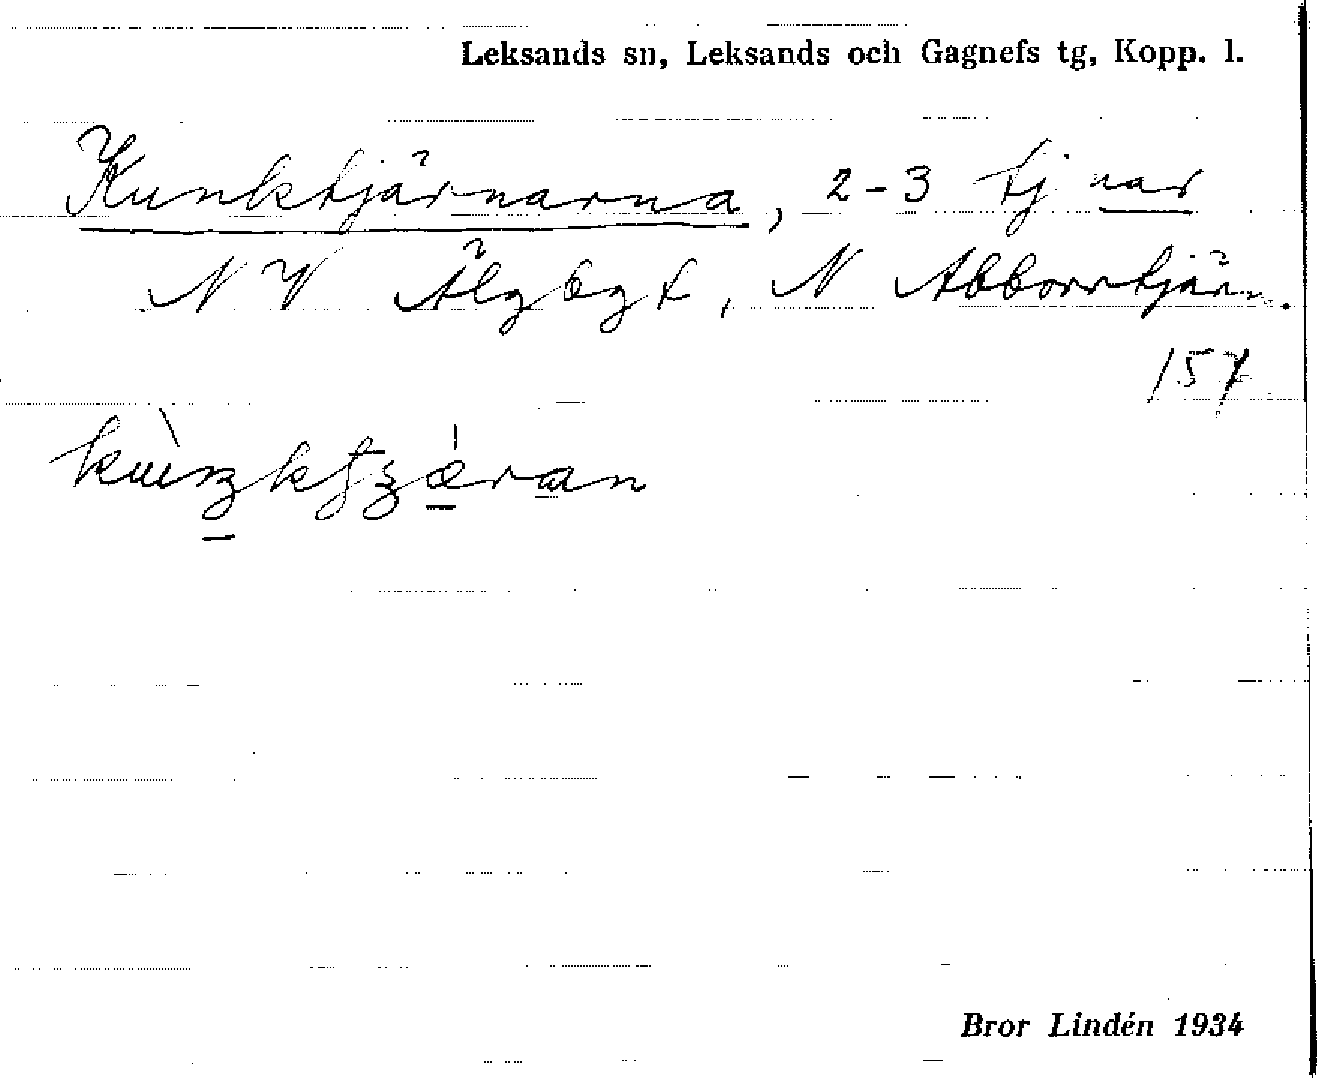 Leksands sn, Leksands och Gagnefs tg, Kopp. l.
Kunktjärnarna, 2-3 tj nar
NV Älgbgt, N Abborrtjärn.
157
Bror Lindén 1934